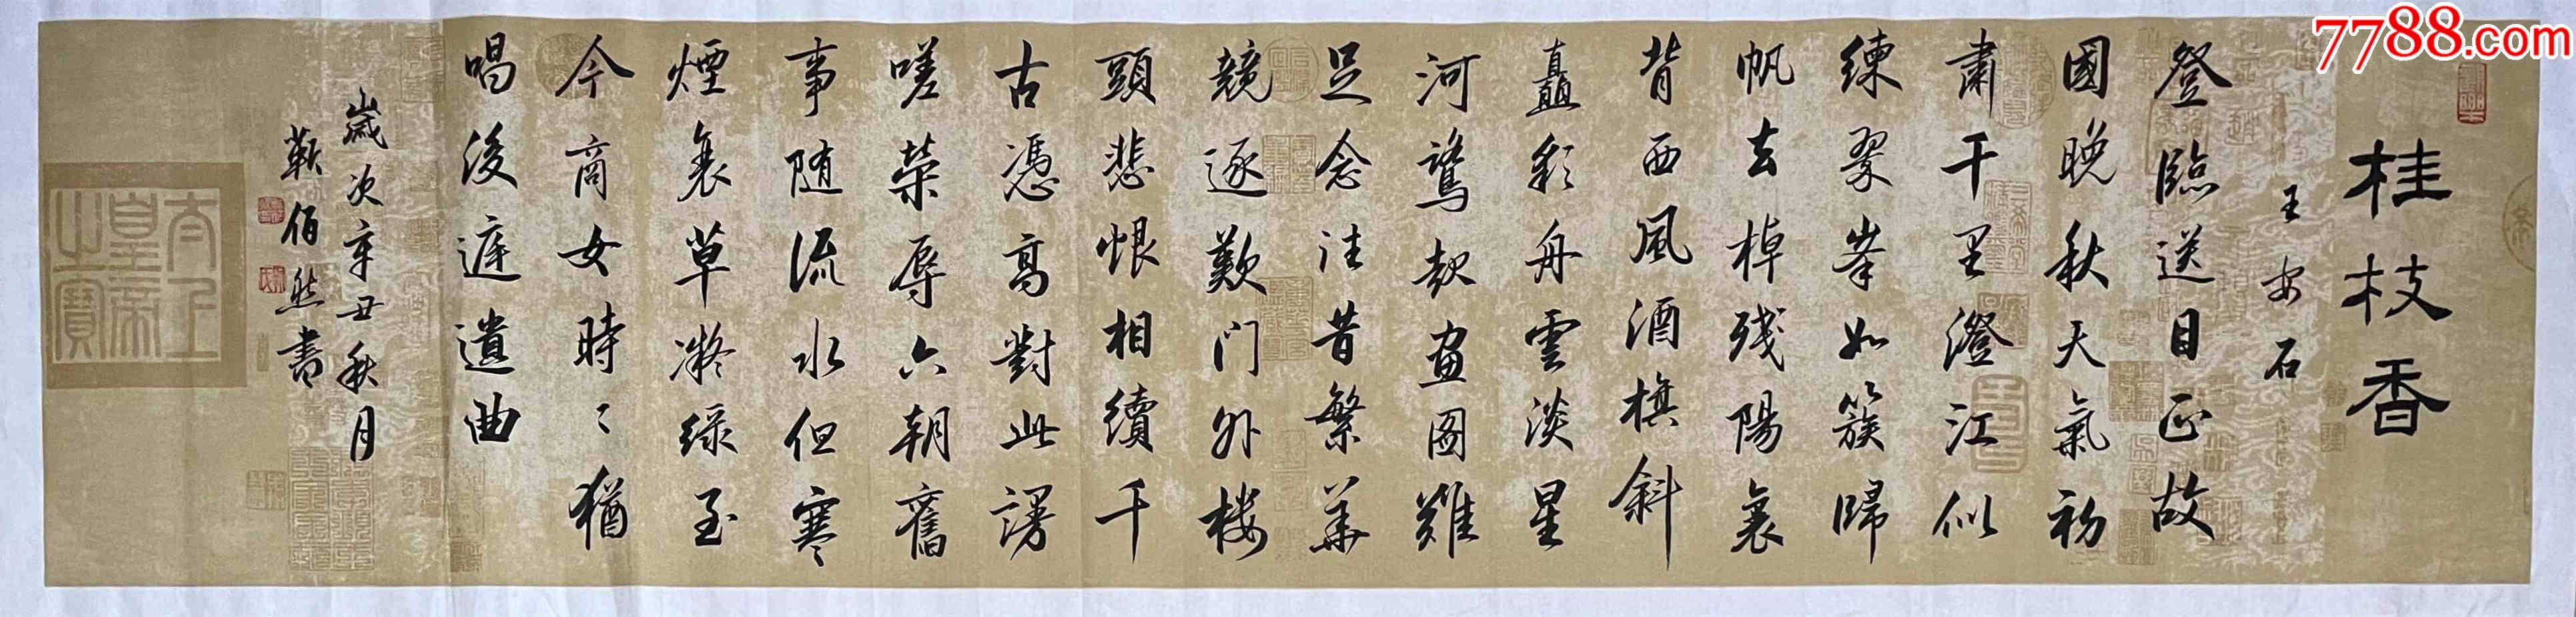 7788.com
桂枝香
王安石
登臨送目正故
國晚秋天氣初
肅千里澄江似
練翠峯如簇歸
帆去棹殘陽裏
背西風酒旗斜
矗彩舟雲淡星
河鷺起畫圖難
足念往昔繁華
競逐歎門外樓
頭悲恨相續千
古憑高對此謾
嗟榮辱六朝舊
事随流水但寒
煙衰草凝綠至
今商女時〻猶
唱後庭遺曲
歲次辛丑秋月
靳佰然書
太上
皇帝
之寶